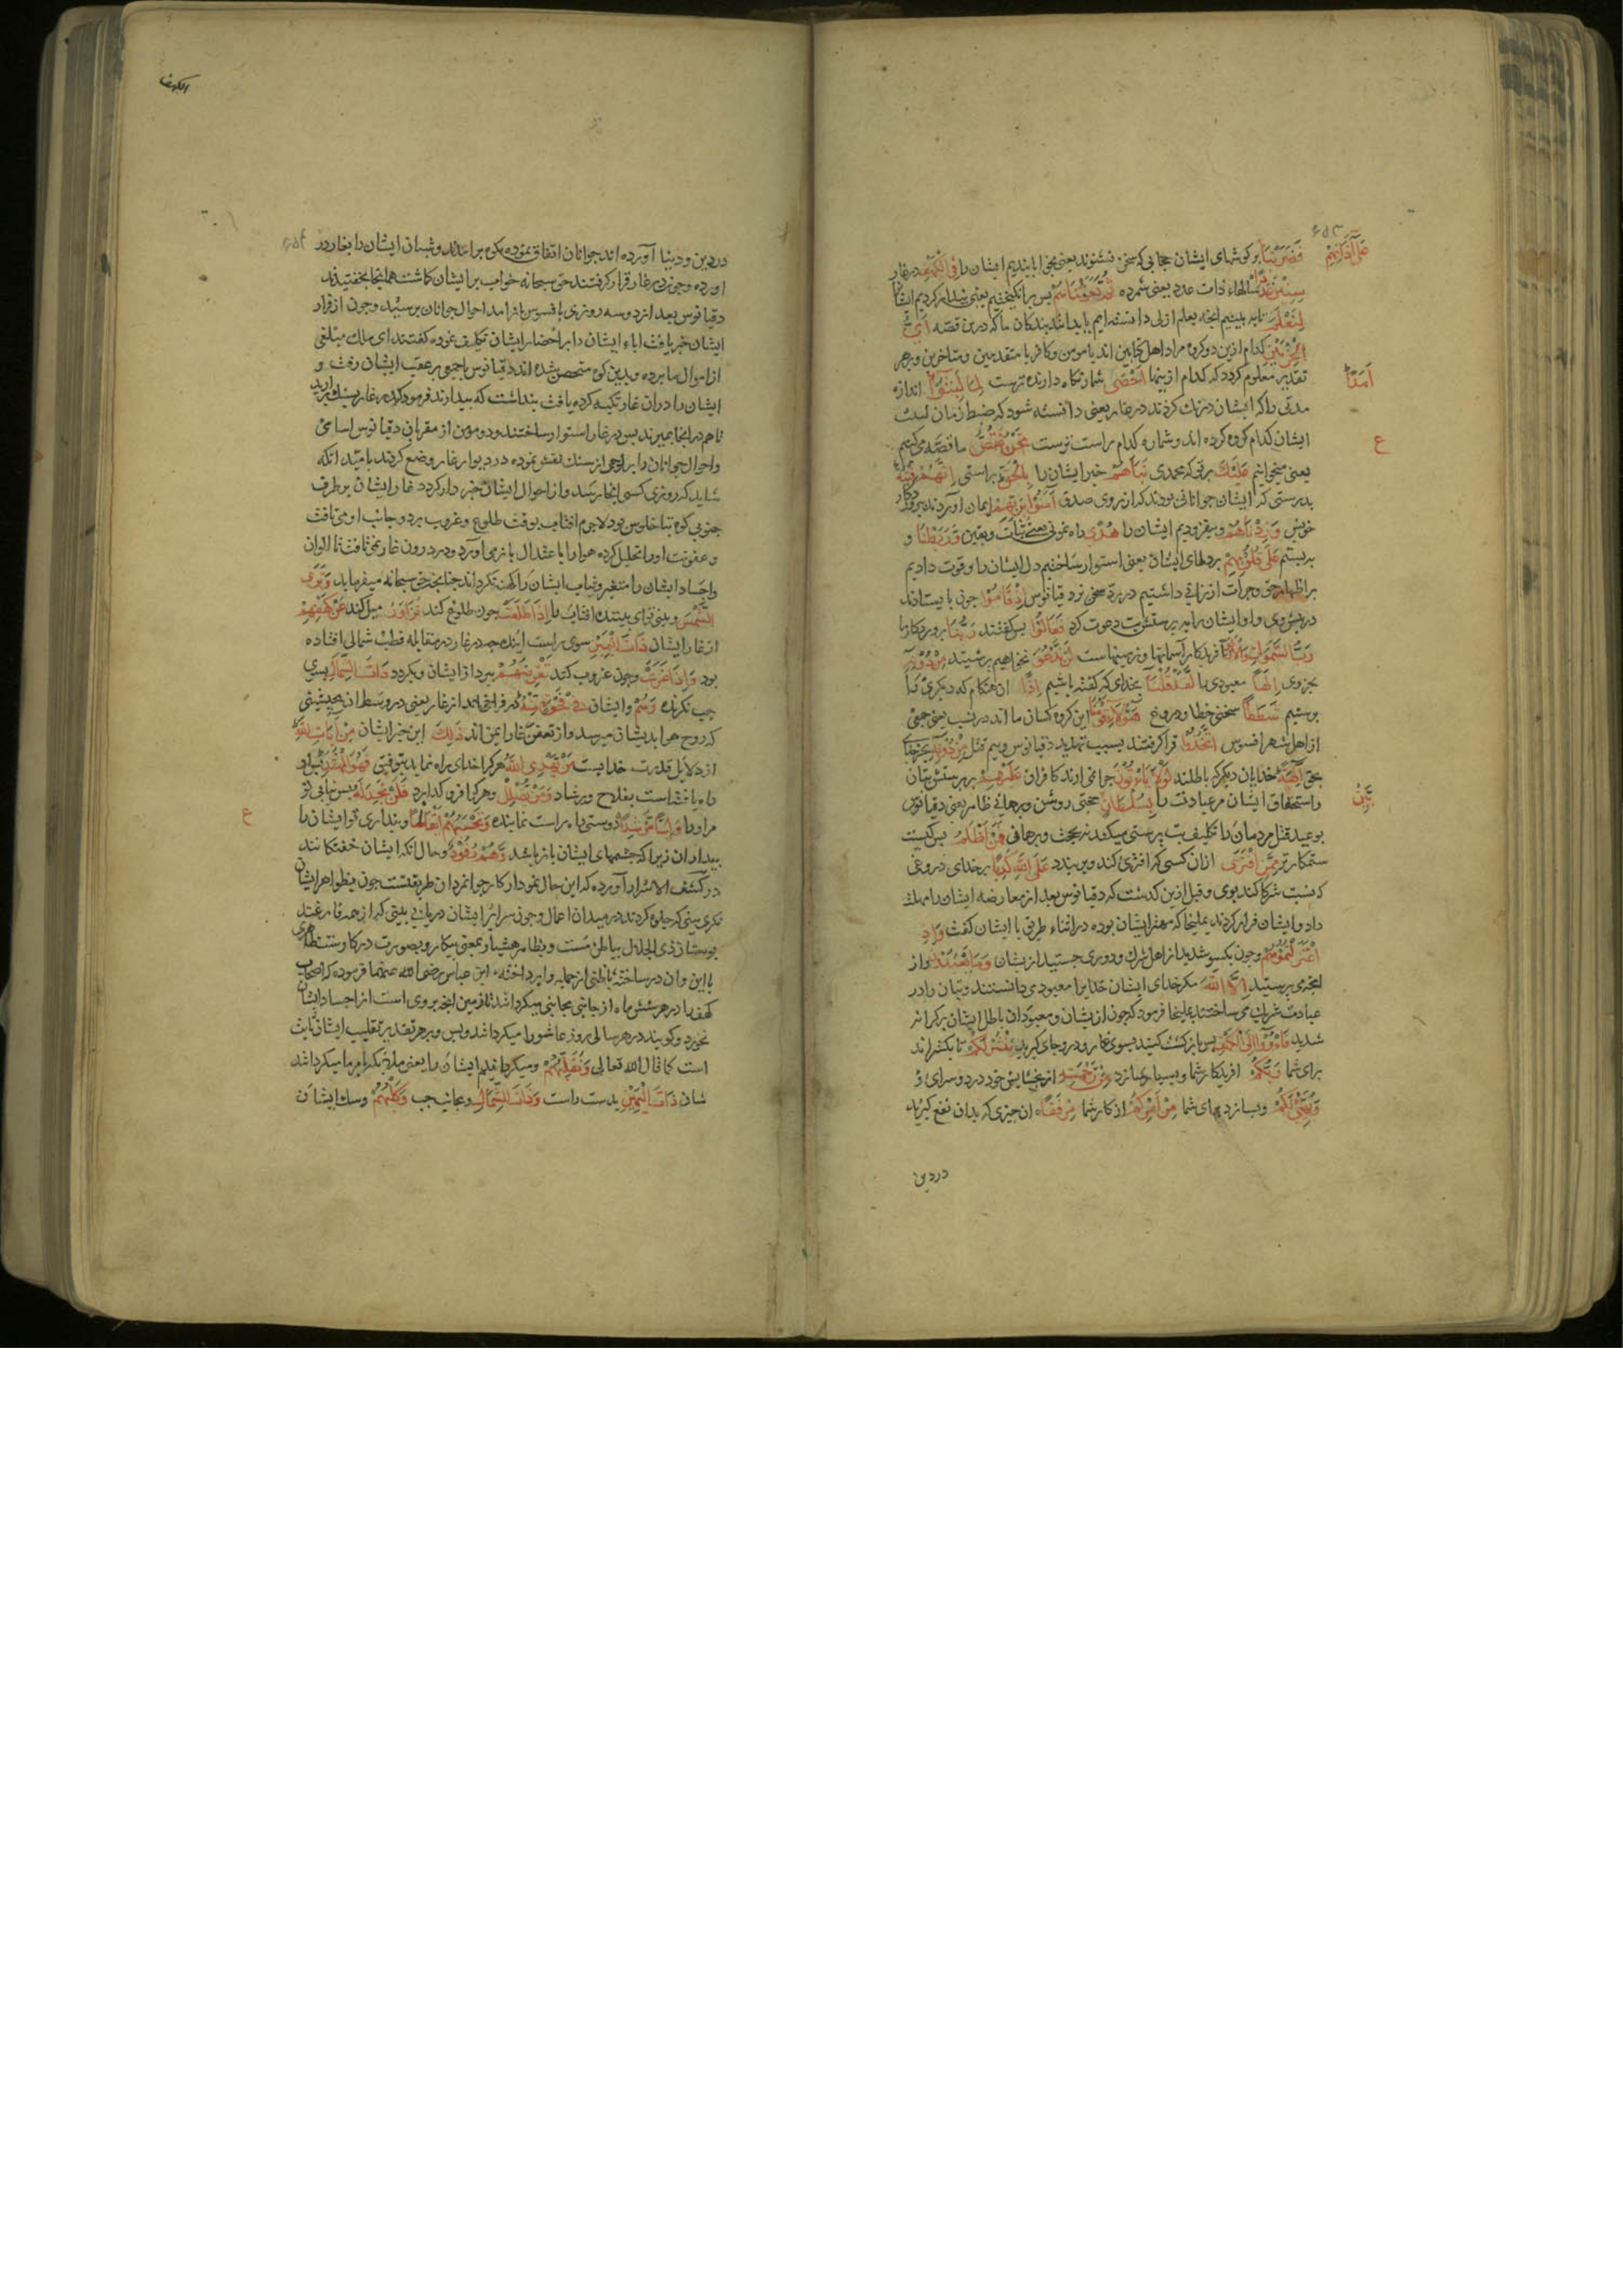 فَضَرَبْنَا بر کوشهای ایشان حجابی که سخن نشنوند یعنی بخوابانیدیم ایشان را فِی الْکَهْفِ در غار
عَلَی آذَانِهِمْ
سِنِینَ عَدَدًا سالهاء ذات عدد یعنی شمرده ثُمَّ بَعَثْنَاهُمْ بس برانکیختیم یعنی بیدار کردیم ایشانرا
لِنَعْلَمَ تا به بینیم انچه بعلم ازلی دانسته ایم یا بدانند بندکان ما که درین قصه اَیُّ
الْحِزْبَیْنِ کدام ازین دو کروه مراد اهل کتابین اند یا مومن و کافر یا متقدمین و متاخرین و بهر
تقدیر معلوم کردد که کدام ازینها اَحْصَی شمار نکاه دارنده ترست لِمَا لَبِثُوا اندازه
اَمَدًا
مدتی را که ایشان درنک کردند در غار یعنی دانسته شود که ضبط زمان لبث
ایشان کدام کروه کرده اند و شماره کدام راست ترست نَحْنُ نَقُصُّ ما قصه می کنیم
ع
یعنی میخوانیم عَلَیْکَ بر تو که محمدی نَبَاَهُمْ خبر ایشان را بِالْحَقِّ براستی اِنَّهُمْ فِتْیَةٌ
بدرستی که ایشان جوانانی بودند که از روی صدق آمَنُوا بِرَبِّهِمْ ایمان اوردند بپروردکار
خویش وَزِدْنَاهُمْ و بیفزودیم ایشان را هُدًی راه نمونی یعنی ثبات و یقین وَرَبَطْنَا و
بربستیم عَلَی قُلُوبِهِمْ بر دلهای ایشان یعنی استوار ساختیم دل ایشان را و قوت دادیم
بر اظهار حق و جرات ارزانی داشتیم در رد سخن دقیانوس اِذْ قَامُوا جون بایستادند
در پیش وی و او ایشان را به پرستش بت دعوت کرد فَقَالُوا بس کفتند رَبُّنَا پروردکار ما
رَبُّ السَّمَوَاتِ وَالْاَرْضِ آفریدکار آسمانها و زمینهاست لَنْ نَدْعُوَ نخواهیم پرستید مِنْ دُونِهِ
بجز وی اِلَهًا معبودی را لَقَدْ قُلْنَا بخدای که کفته باشیم اِذًا ان هنکام که دیکری را
پرستیم شَطَطًا سخنی خطا و دروغ هَؤُلَاءِ قَوْمُنَا این کروه کسان ما اند در نسب یعنی جمعی
از اهل شهر افسوس اتَّخَذُوا فرا کرفتند بسبب تهدید دقیانوس و بیم قتل مِنْ دُونِهِ بجز خدای
بحق آلِهَةً خدایان دیکر که باطلند لَوْلَا یَاْتُونَ جرا نمی ارند کافران عَلَیْهِمْ بر پرستش بتان
و استحقاق ایشان مر عبادت را بِسُلْطَانٍ حجتی روشن و برهانی ظاهر یعنی دقیانوس
بَیِّنٍ
بوعید قتل مردمان را تکلیف بت پرستی میکند نه بحجت و برهانی فَمَنْ اَظْلَمُ بس کیست
ستمکارتر مِمَّنِ افْتَرَی ازان کسی که افتری کند و بربندد عَلَی اللّٰهِ کَذِبًا بر خدای دروغی
که نسبت شرکا کند بوی و قبل ازین کدشت که دقیانوس بعد از معارضه ایشان را مهلت
داد و ایشان فرار کردند یملیخا که مهتر ایشان بوده در اثناء طریق با ایشان کفت وَاِذِ
اعْتَزَلْتُمُوهُمْ و جون یکسو شدید از اهل شرک و دوری جستید ازیشان وَمَا یَعْبُدُونَ و از
انچه می پرستید اِلَّا اللّٰهَ مکر خدای ایشان خدایرا معبودی می دانستند و بتان را در
عبادت شریک می ساختند یملیخا فرمود که جون ازیشان و معبودان باطل ایشان بر کرانه
شدید فَاْوُوا اِلَی الْکَهْفِ بس باز کشت کنید بسوی غار و درو جای کیرید یَنْشُرْ لَکُمْ تا بکشراند
برای شما رَبُّکُمْ افریدکار شما و بسیار سازد مِنْ رَحْمَتِهِ از بخشایش خود در دو سرای
وَیُهَیِّئْ لَکُمْ و بسازد برای شما مِنْ اَمْرِکُمْ از کار شما مِرْفَقًا ان جیزی که بدان نفع کیرید
در دین
الکهف
در دین و دنیا آورده اند جوانان اتفاق نموده بکوه برامدند و شبان ایشان را بغار در
اورده و جون در غار قرار کرفتند حق سبحانه خواب بر ایشان کماشت همانجا بخفتیدند
دقیانوس بعد از دو سه روزی بافسوس باز امد احوال جوانان پرسید و جون از فرار
ایشان خبر یافت اباء ایشان را بر احضار ایشان تکلیف نموده کفتند ای ملک مبلغی
از اموال ما برده و بدین کوه متحصن شده اند دقیانوس با جمعی بر عقب ایشان رفت و
ایشان را دران غار تکیه کرده یافت بنداشت که بیدارند فرمود که در غار بسنک برارید
تا هم در انجا بمیرند بس در غار استوار ساختند و دو مومن از مقربان دقیانوس اسامی
و احوال جوانان را بر لوحی از سنک نقش نموده در دیوار غار وضع کردند بامید انکه
شاید که روزی کسی انجا رسد و از احوال ایشان خبردار کردد غار ایشان بر طرف
جنوبی کوه بود لاجرم افتاب بوقت طلوع و غروب بر دو جانب او می تافت
و عفونت او را تحلیل کرده هوا را باعتدال باز می اورد و در درون غار نمی تافت تا الوان
و اجساد ایشان را متغیر و ثیاب ایشان را کهنه نکرداند جنانجه حق سبحانه میفرماید وَتَرَی
الشَّمْسَ و بینی تو ای بیننده افتاب را اِذَا طَلَعَتْ جون طلوع کند تَزَاوَرُ میل کند عَنْ کَهْفِهِمْ
از غار ایشان ذَاتَ الْیَمِینِ سوی راست اینده جه در غار در مقابله قطب شمالی افتاده
بود وَاِذَا غَرَبَتْ و جون غروب کند تَقْرِضُهُمْ ببرد از ایشان و بکردد ذَاتَ الشِّمَالِ بسوی
جب نکرنده وَهُمْ و ایشان فِی فَجْوَةٍ مِنْهُ در فراخی اند از غار یعنی در وسط ان بحیثیتی
که روح هوا بدیشان میرسد و از تعفن غار ایمن اند ذَلِکَ این خبر ایشان مِنْ آیَاتِ اللّٰهِ
از دلایل قدرت خدایست مَنْ یَهْدِی اللّٰهُ هر کرا خدای راه نماید بتوفیق فَهُوَ الْمُهْتَدِ بس او
راه یافته است بفلاح و رشاد وَمَنْ یُضْلِلْ و هر کرا فرو کذارد فَلَنْ تَجِدَ لَهُ بس نیابی تو
مر او را وَلِیًّا مُرْشِدًا دوستی راه راست نماینده وَتَحْسَبُهُمْ اَیْقَاظًا و بنداری تو ایشان را
ع
بیداران زیرا که جشمهای ایشان باز باشد وَهُمْ رُقُودٌ و حال انکه ایشان خفتکانند
در کشف الاسرار آورده که این حال نمودار کار جوانمردان طریقتست جون بظواهر ایشان
نکری بینی که جلوه کردند در میدان اعمال و جون سرائر ایشان دریابی بینی که از همه فارغند
بوستان ذی الجلال بباطن مست و بظاهر هشیار و بمعنی بیکار و بصورت در کار
با این و ان در ساخته بباطن از جمله وا برداخته ابن عباس رضی الله عنهما فرموده که اصحاب
کهف را در هر شش ماه از جانبی بجانبی میکرداند تا زمین انچه بروی است از اجساد ایشان
نخورد و کویند در هر سالی روز عاشورا میکرداند و بس و بر هر تقدیر تقلیب ایشان ثابت
است کما قال الله تعالی وَنُقَلِّبُهُمْ و میکردانیم ایشان را یعنی ملائکه بامر ما میکرداند
شان ذَاتَ الْیَمِینِ بدست راست وَذَاتَ الشِّمَالِ و بجانب جب وَکَلْبُهُمْ و سک ایشان